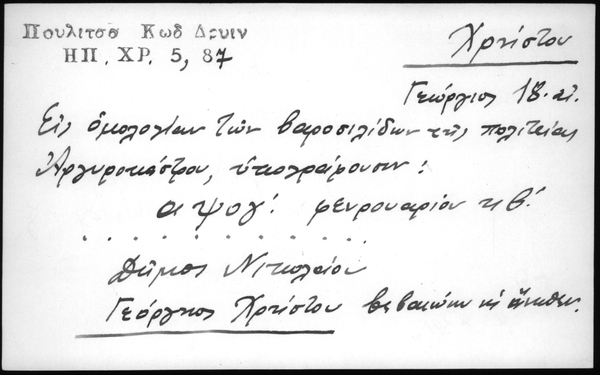 Πουλιτσα Κωδ Δρυιν
ΗΠ. ΧΡ. 5, 87
Χρήστου
Γεώργιος 18. αἰ.
Εἰς ὁμολογίαν τῶν βαροσιλίδων τῆς πολιτείας
Ἀργυροκάστρου, ὑπογράφουσιν:
αψογ΄. φευρουαρίου κβ΄.
. . . . . . . . . . .
Δῆμος Νικολάου
Γεόργιος Χρήστου βεβαιώνω κὲ ἄνωθεν.